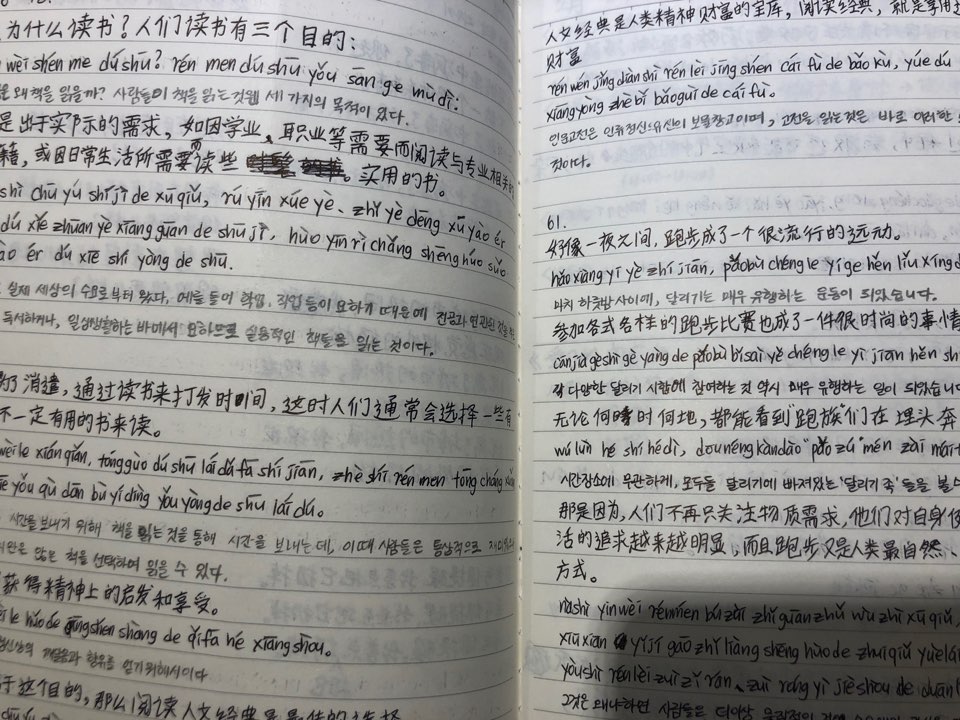 为什么读书？人们读书有三个目的：
wèi shén me dú shū? rén men dú shū yǒu sān ge mù dì:
왜 책을 읽을까? 사람들이 책을 읽는 것엔 세 가지의 목적이 있다.
是出于实际的需求，如因学业、职业等需要而阅读与专业相关的
籍，或因日常生活所需要而读些 实用的书。
shì chū yú shí jì de xū qiú, rú yīn xué yè、zhí yè děng xū yào ér
dú xiē zhuān yè xiāng guān de shū jí, huò yīn rì cháng shēng huó suǒ
ào ér dú xiē shí yòng de shū.
실제 세상의 수요로부터 왔다, 예를 들어 학업, 직업 등이 요하기 때문에 전공과 연관된
독서하거나, 일상생활하는 바에서 요하므로 실용적인 책들을 읽는 것이다.
为了消遣，通过读书来打发时间，这时人们通常会选择一些有
不一定有用的书来读。
wèi le xiāo qiǎn, tōng guò dú shū lái dǎ fā shí jiān, zhè shí rén men tōng cháng
yǒu qù dàn bù yí dìng yǒu yòng de shū lái dú.
시간을 보내기 위해 책을 읽는 것을 통해 시간을 보내는데, 이때 사람들은 통상적으로
않은 책을 선택하여 읽을 수 있다.
获得精神上的启发和享受。
huò dé jīng shén shàng de qǐ fā hé xiǎng shòu.
깨달음과 향유를 얻기 위해서이다
于这个目的，那么阅读人文经典是最佳的选择
人文经典是人类精神财富的宝库，阅读经典，就是享用
财富
rén wén jīng diǎn shì rén lèi jīng shén cái fù de bǎo kù, yuè dú
xiǎng yòng zhè bǐ bǎo guì de cái fù.
인문고전은 인류정신유산의 보물창고이며, 고전을 읽는것은 바로 이러한
것이다.
61.
好像一夜之间，跑步成了一个很流行的运动。
hǎo xiàng yí yè zhī jiān, pǎo bù chéng le yí ge hěn liú xíng d
마치 하룻밤 사이에, 달리기는 매우 유행하는 운동이 되었습니다.
参加各式各样的跑步比赛也成了一件很时尚的事情
cān jiā gè shì gè yàng de pǎo bù bǐ sài yě chéng le yí jiàn hěn sh
각 다양한 달리기 시합에 참여하는 것 역시 매우 유행하는 일이 되었습니다
无论何时何地，都能看到“跑族”们在埋头奔
wú lùn hé shí hé dì, dōu néng kàn dào “pǎo zú” mén zài mái t
시간장소에 무관하게, 모두들 달리기에 빠져있는 '달리기 족'들을 볼 수
那是因为，人们不再只关注物质需求，他们对自身
活的追求越来越明显，而且跑步又是人类最自然、
方式。
nà shì yīn wèi rén men bú zài zhǐ guān zhù wù zhì xū qiú,
xiū xián yǐ jí gāo zhì liàng shēng huó de zhuī qiú yuè lái
yòu shì rén lèi zuì zì rán、zuì róng yì jiē shòu de duàn
그것은 왜냐하면 사람들은 더이상